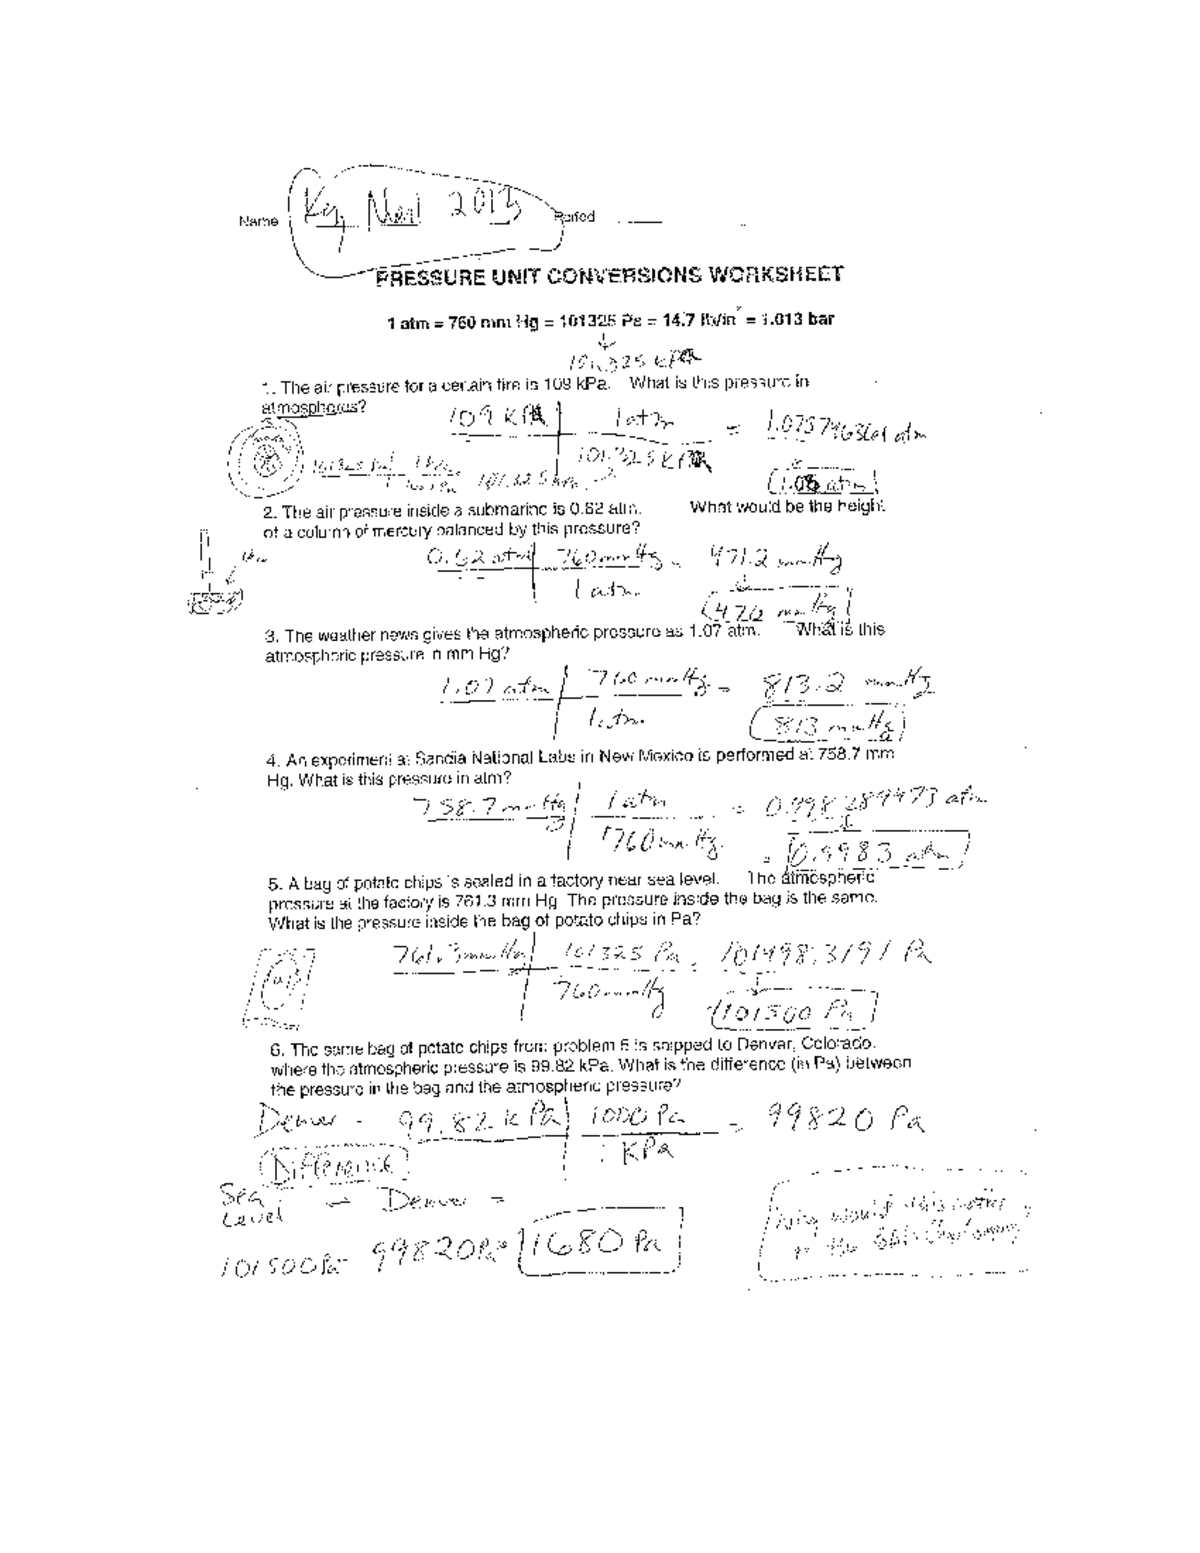 Name Key Nerl 2013 Period
PRESSURE UNIT CONVERSIONS WORKSHEET
1 atm = 760 mm Hg = 101325 Pa = 14.7 lb/in² = 1.013 bar
101.325 kPa
1. The air pressure for a certain tire is 109 kPa. What is this pressure in
atmospheres?
109 kPa 1 atm = 1.075746361 atm
101.325 kPa
101.325 kPa
1.08 atm
2. The air pressure inside a submarine is 0.62 atm. What would be the height
of a column of mercury balanced by this pressure?
0.62 atm 760 mm Hg = 471.2 mm Hg
1 atm
470 mm Hg
3. The weather news gives the atmospheric pressure as 1.07 atm. What is this
atmospheric pressure in mm Hg?
1.07 atm 760 mm Hg = 813.2 mm Hg
1 atm
813 mm Hg
4. An experiment at Sandia National Labs in New Mexico is performed at 758.7 mm
Hg. What is this pressure in atm?
758.7 mm Hg 1 atm = 0.998289473 atm
760 mm Hg
= 0.9983 atm
5. A bag of potato chips is sealed in a factory near sea level. The atmospheric
pressure at the factory is 761.3 mm Hg. The pressure inside the bag is the same.
What is the pressure inside the bag of potato chips in Pa?
761.3 mm Hg 101325 Pa = 101498.3191 Pa
760 mm Hg
101500 Pa
6. The same bag of potato chips from problem 5 is shipped to Denver, Colorado,
where the atmospheric pressure is 99.82 kPa. What is the difference (in Pa) between
the pressure in the bag and the atmospheric pressure?
Denver - 99.82 kPa 1000 Pa = 99820 Pa
1 KPa
Difference
Sea Level - Denver =
101500 Pa - 99820 Pa = 1680 Pa
Why would this matter
to the